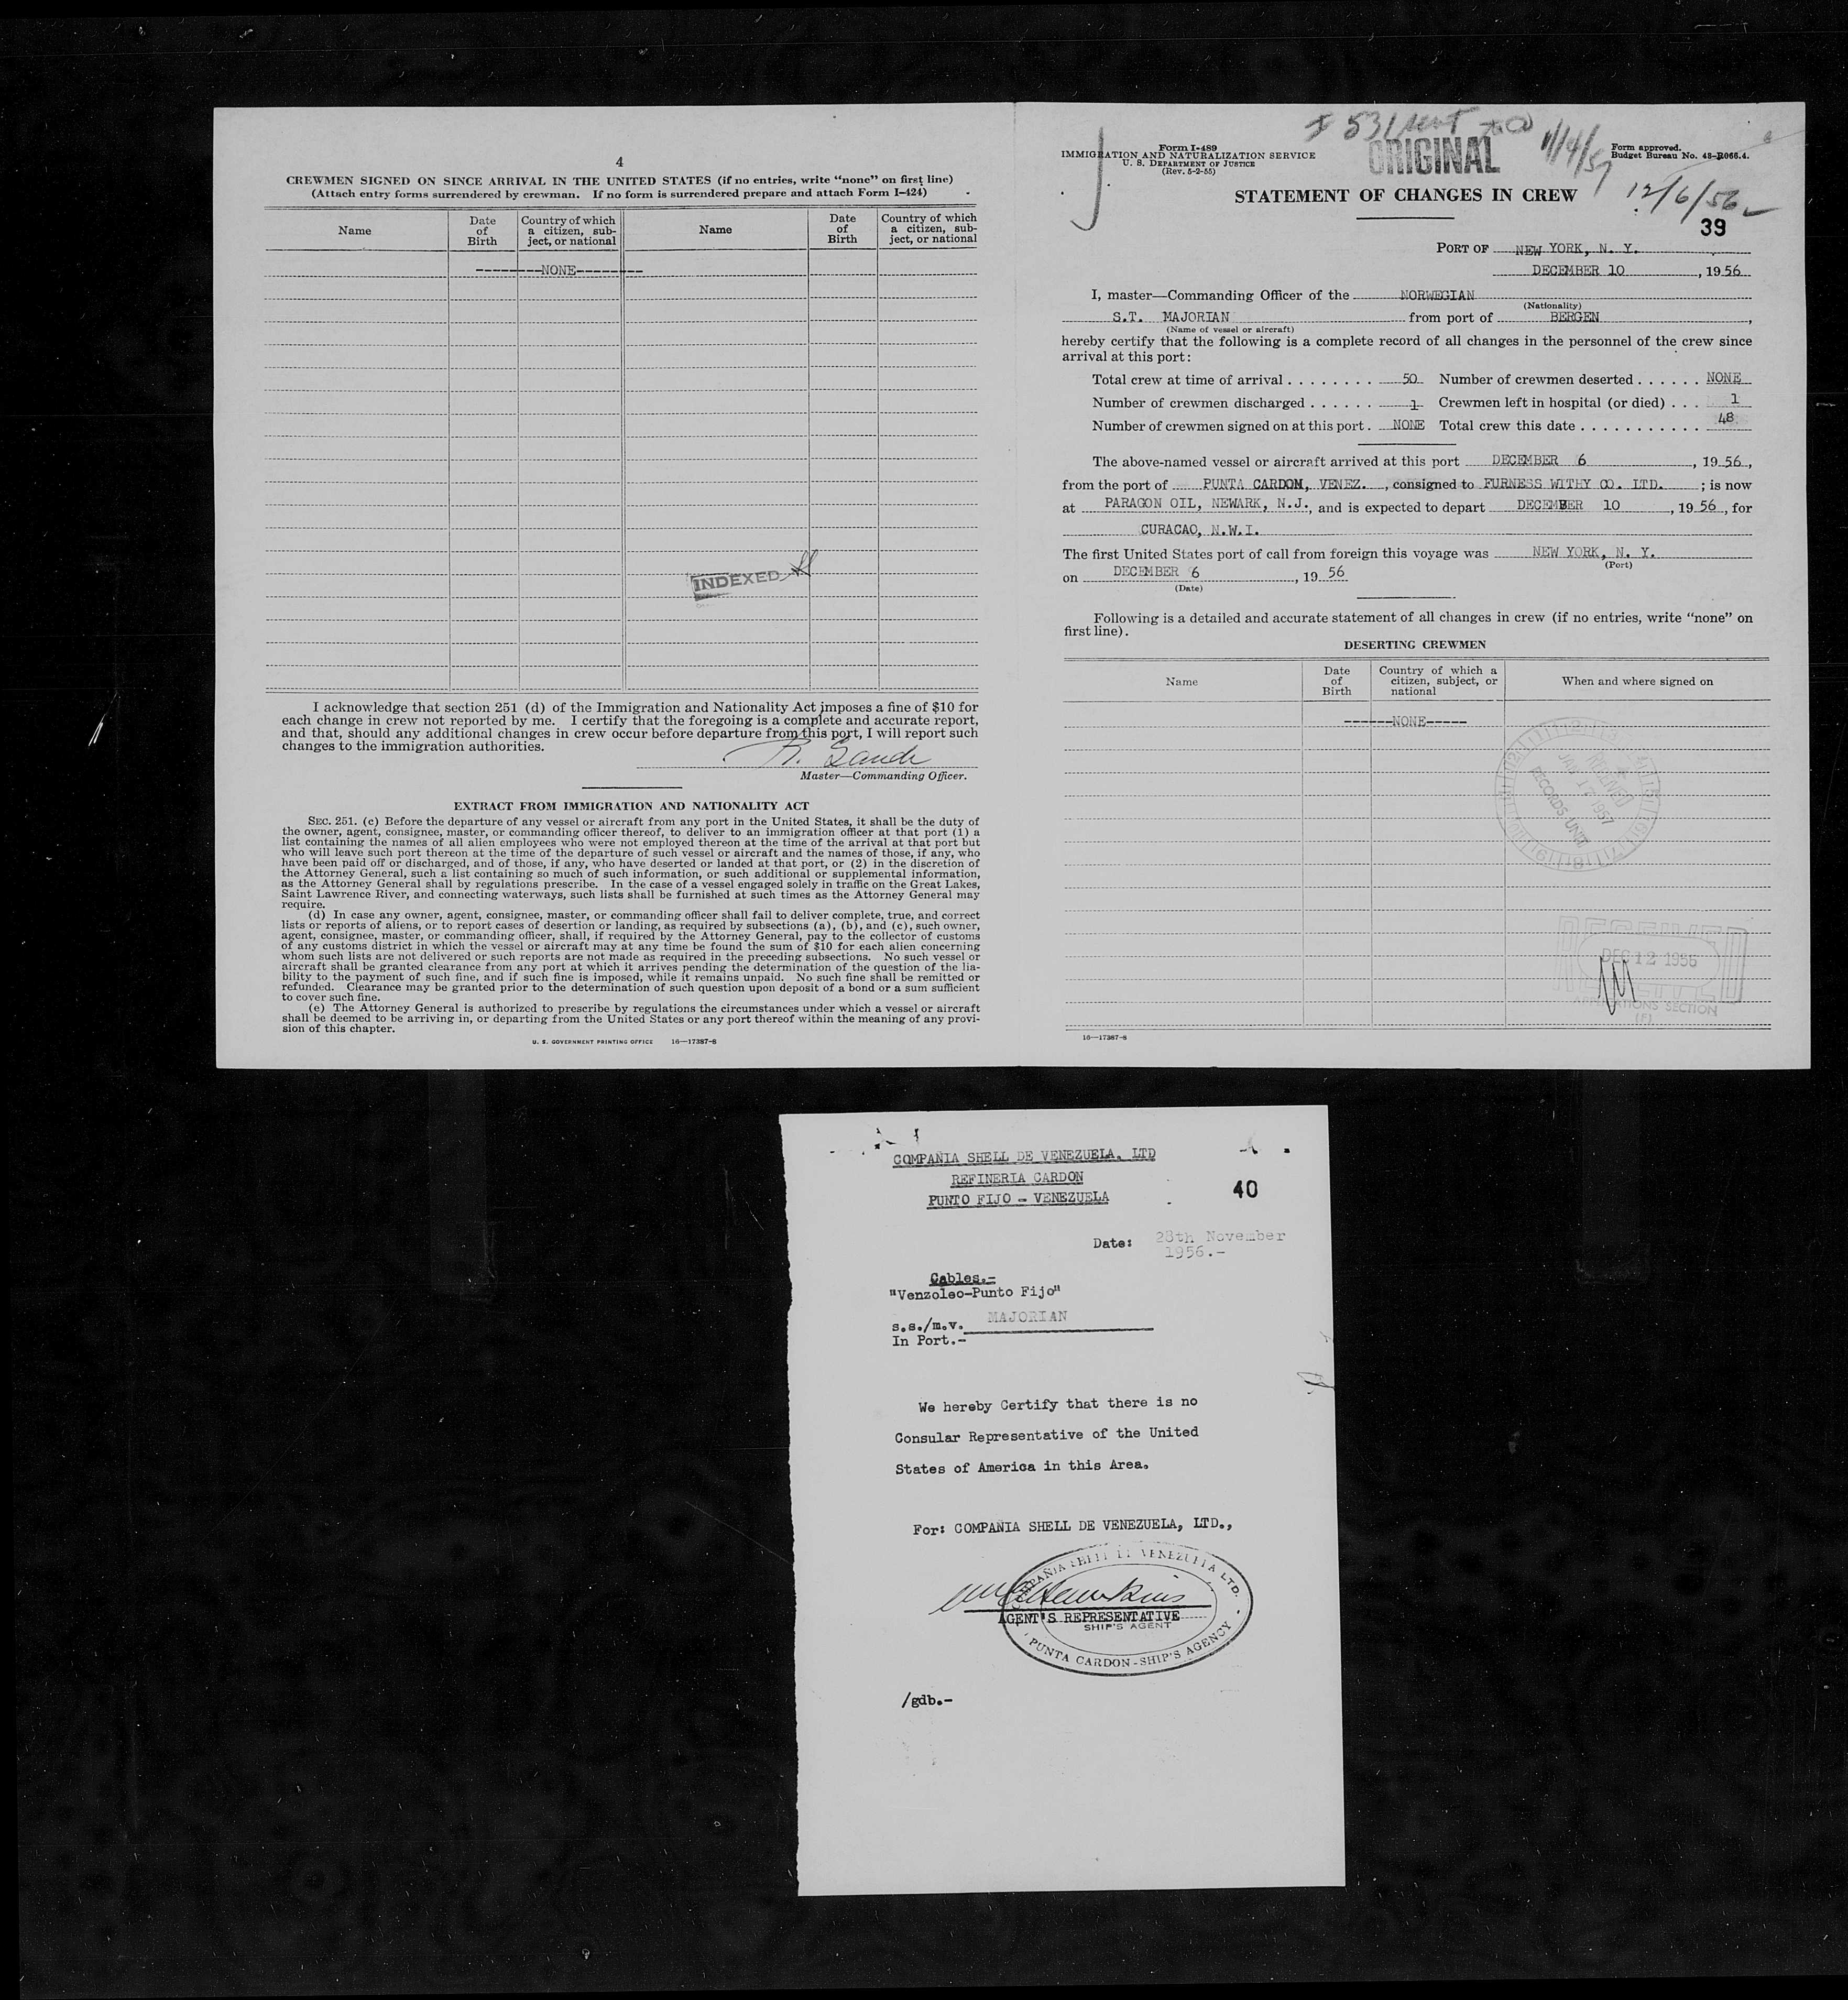 4
CREWMEN SIGNED ON SINCE ARRIVAL IN THE UNITED STATES (if no entries, write “none” on first line)
(Attach entry forms surrendered by crewman. If no form is surrendered prepare and attach Form I-424)
Name
Date of Birth
Country of which a citizen, subject, or national
Name
Date of Birth
Country of which a citizen, subject, or national
--------NONE--------
INDEXED
I acknowledge that section 251 (d) of the Immigration and Nationality Act imposes a fine of $10 for
each change in crew not reported by me. I certify that the foregoing is a complete and accurate report,
and that, should any additional changes in crew occur before departure from this port, I will report such
changes to the immigration authorities.
Master—Commanding Officer.
EXTRACT FROM IMMIGRATION AND NATIONALITY ACT
SEC. 251. (c) Before the departure of any vessel or aircraft from any port in the United States, it shall be the duty of
the owner, agent, consignee, master, or commanding officer thereof, to deliver to an immigration officer at that port (1) a
list containing the names of all alien employees who were not employed thereon at the time of the arrival at that port but
who will leave such port thereon at the time of the departure of such vessel or aircraft and the names of those, if any, who
have been paid off or discharged, and of those, if any, who have deserted or landed at that port, or (2) in the discretion of
the Attorney General, such a list containing so much of such information, or such additional or supplemental information,
as the Attorney General shall by regulations prescribe. In the case of a vessel engaged solely in traffic on the Great Lakes,
Saint Lawrence River, and connecting waterways, such lists shall be furnished at such times as the Attorney General may
require.
(d) In case any owner, agent, consignee, master, or commanding officer shall fail to deliver complete, true, and correct
lists or reports of aliens, or to report cases of desertion or landing, as required by subsections (a), (b), and (c), such owner,
agent, consignee, master, or commanding officer, shall, if required by the Attorney General, pay to the collector of customs
of any customs district in which the vessel or aircraft may at any time be found the sum of $10 for each alien concerning
whom such lists are not delivered or such reports are not made as required in the preceding subsections. No such vessel or
aircraft shall be granted clearance from any port at which it arrives pending the determination of the question of the lia-
bility to the payment of such fine, and if such fine is imposed, while it remains unpaid. No such fine shall be remitted or
refunded. Clearance may be granted prior to the determination of such question upon deposit of a bond or a sum sufficient
to cover such fine.
(e) The Attorney General is authorized to prescribe by regulations the circumstances under which a vessel or aircraft
shall be deemed to be arriving in, or departing from the United States or any port thereof within the meaning of any provi-
sion of this chapter.
U. S. GOVERNMENT PRINTING OFFICE 16—17387-8
ORIGINAL
Form I-489
IMMIGRATION AND NATURALIZATION SERVICE
U. S. DEPARTMENT OF JUSTICE
(Rev. 5-2-55)
Form approved.
Budget Bureau No. 43-R066.4.
STATEMENT OF CHANGES IN CREW
12/6/56
39
PORT OF NEW YORK, N. Y.
DECEMBER 10, 1956
I, master—Commanding Officer of the NORWEGIAN
(Nationality)
S.T. MAJORIAN from port of BERGEN,
(Name of vessel or aircraft)
hereby certify that the following is a complete record of all changes in the personnel of the crew since
arrival at this port:
Total crew at time of arrival ........ 50 Number of crewmen deserted ...... NONE
Number of crewmen discharged ...... 1 Crewmen left in hospital (or died) ... 1
Number of crewmen signed on at this port. NONE Total crew this date ........... 48
The above-named vessel or aircraft arrived at this port DECEMBER 6, 1956,
from the port of PUNTA CARDON, VENEZ., consigned to FURNESS WITHY CO. LTD. ; is now
at PARAGON OIL, NEWARK, N.J., and is expected to depart DECEMBER 10, 1956, for
CURACAO, N.W.I.
The first United States port of call from foreign this voyage was NEW YORK, N. Y.
(Port)
on DECEMBER 6, 1956
(Date)
Following is a detailed and accurate statement of all changes in crew (if no entries, write “none” on
first line).
DESERTING CREWMEN
Name
Date of Birth
Country of which a citizen, subject, or national
When and where signed on
------NONE-----
RECEIVED
JAN 17 1957
RECORDS UNIT
RECEIVED
DEC 12 1956
SECTION
16—17387-8
COMPAÑIA SHELL DE VENEZUELA. LTD
REFINERIA CARDON
PUNTO FIJO - VENEZUELA
40
Date: 28th November
1956.-
Cables.-
"Venzoleo-Punto Fijo"
s.s./m.v. MAJORIAN
In Port.-
We hereby Certify that there is no
Consular Representative of the United
States of America in this Area.
For: COMPAÑIA SHELL DE VENEZUELA, LTD.,
COMPAÑIA SHELL DE VENEZUELA LTD.
AGENT'S REPRESENTATIVE
SHIP'S AGENT
PUNTA CARDON - SHIP'S AGENCY
/gdb.-